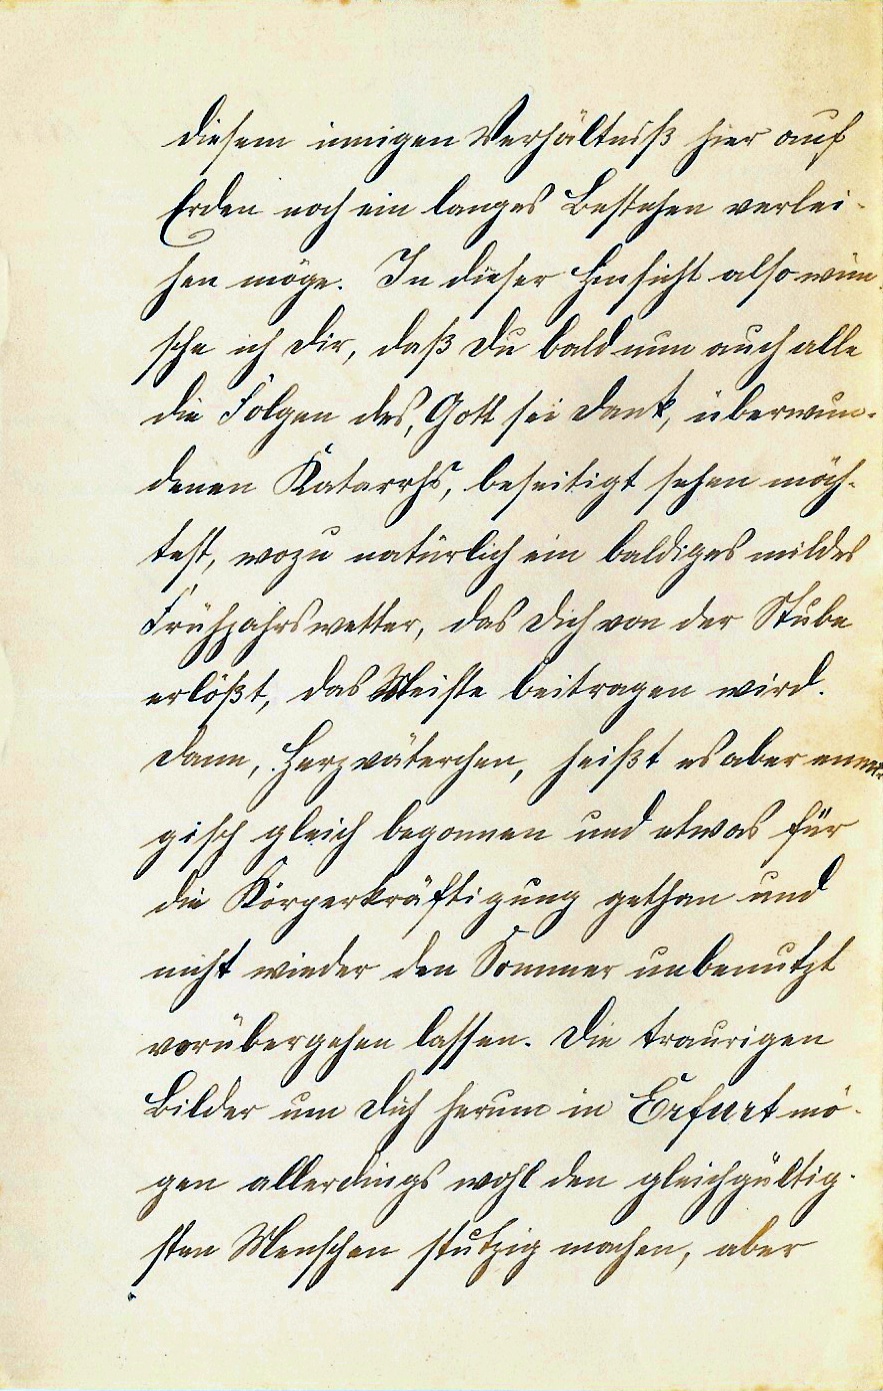 diesem innigen Verhältniß hier auf
Erden noch ein langes Bestehen verlei-
hen möge. In dieser Hinsicht also wün
sche ich Dir, daß Du bald nun auch alle
die Folgen des, Gott sei Dank, überwun-
denen Katarrhs, beseitigt sehen möch-
test, wozu natürlich ein baldiges mildes
Frühjahrswetter, das Dich von der Stube
erlößt, das Meiste beitragen wird.
Dann, Herzväterchen, heißt es aber ener-
gisch gleich begonnen und etwas für
die Körperkräftigung gethan und
nicht wieder den Sommer unbenutzt
vorübergehen lassen. Die traurigen
Bilder um Dich herum in Erfurt mö-
gen allerdings wohl den gleichgültig-
sten Menschen stutzig machen, aber